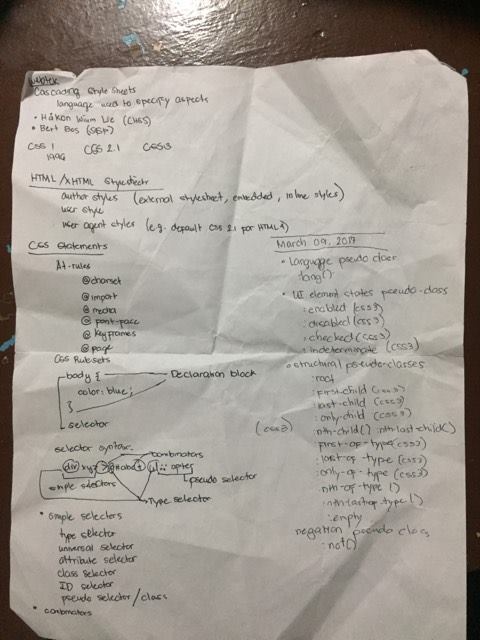 webtek
Cascading Style Sheets
language used to specify aspects
• Håkon Wium Lie (CHSS)
• Bert Bos (SSP)
CSS 1 CSS 2.1 CSS3
1996
HTML / XHTML
author styles (external stylesheet, embedded, inline styles)
user style
user agent styles (e.g. default CSS 2.1 for HTML4)
CSS Statements
At-rules
@charset
@import
@media
@font-face
@keyframes
@page
CSS Rulesets
body { Declaration block
color: blue;
}
selector
selector syntax
combinators
div
simple selectors
pseudo selector
Type selector
• simple selectors
type selector
universal selector
attribute selector
class selector
ID selector
pseudo selector / class
• combinators
March 09, 2017
• Language pseudo class
:lang()
• UI element states pseudo-class
:enabled (CSS3)
:disabled (CSS3)
:checked (CSS3)
:indeterminate (CSS3)
• structural pseudo-classes
:root
:first-child (CSS3)
:last-child (CSS3)
:only-child (CSS3)
(CSS3) :nth-child() :nth-last-child()
first-of-type (CSS3)
:last-of-type (CSS3)
:only-of-type (CSS3)
:nth-of-type ()
:nth-last-of-type ()
:empty
negation pseudo class
:not()